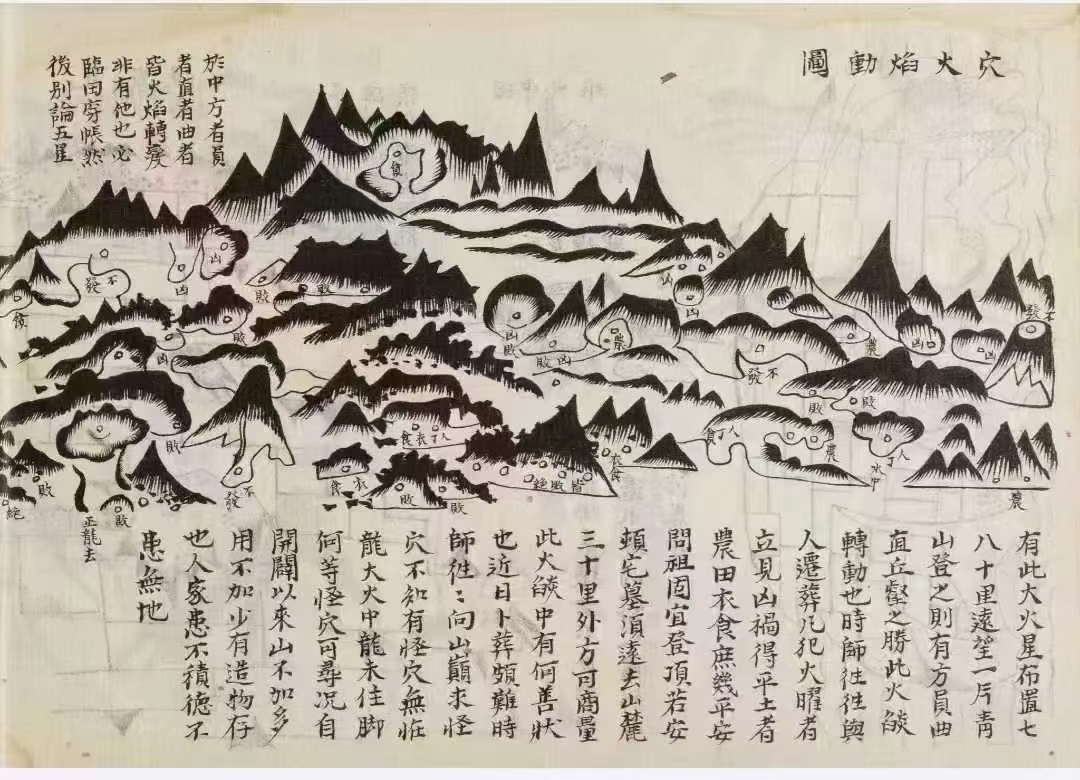 穴火焰動圖
於中方者員
者直者曲者
皆火焰轉变
非有他也必
臨田穿帳然
後別論五星
貪
凶
不發
凶
敗
敗
凶
不發
貪
敗
凶
凶敗
敗凶
農
凶
農
凶
凶
不發
敗
敗
敗
人丁衣食
人丁食
農
人丁
水中
衣食
不發
衣食
敗
敗
皆敗絶
農
敗
絕
敗
正龍去
有此大火星布置七
八十里遠望一片靑
山登之則有方員曲
直丘壑之勝此火燄
轉動也時師徃徃與
人遷葬凢犯火曜者
立見凶禍得平土者
農田衣食庶幾平安
問祖固宜登頂若安
頓宅墓須遠去山麓
三十里外方可商量
此火燄中有何善狀
也近日卜葬頗難時
師徃〻向山巔求怪
穴不知有怪穴無恠
龍大火中龍未住脚
何等怪穴可尋况自
開闢以來山不加多
用不加少有造物存
也人家患不積德不
患無地